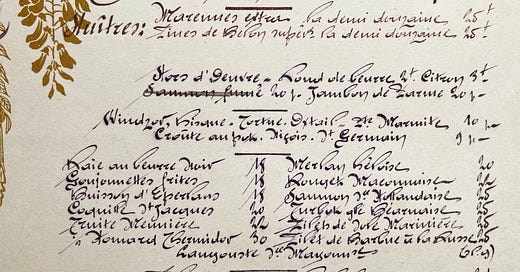 Huîtres: Marennes extra la demi douzaine 25f
Fines de Belon supér. la demi douzaine 25f
Hors d'Oeuvre - Rond de beurre 2f. Citron 3f
Saumon fumé 20f. Jambon de Parme 20f
Windsor, Bisque, Tortue, Oxtail - Pte Marmite 10f
Croûte au pot. Niçois. St Germain 9f
Raie au beurre noir 18 Merlan Héloïse 20
Goujonnettes frites 18 Rouget Maconnaise
Buisson d'Eperlans 18 Saumon Hollandaise
Coquille St Jacques 20 Turbot Béarnaise 25
Truite Meunière 22 Filets de Sole Marinière
Homard Thermidor 30 Filet de Barbue à la Russe 25
Langouste Mayonn. (S.g)